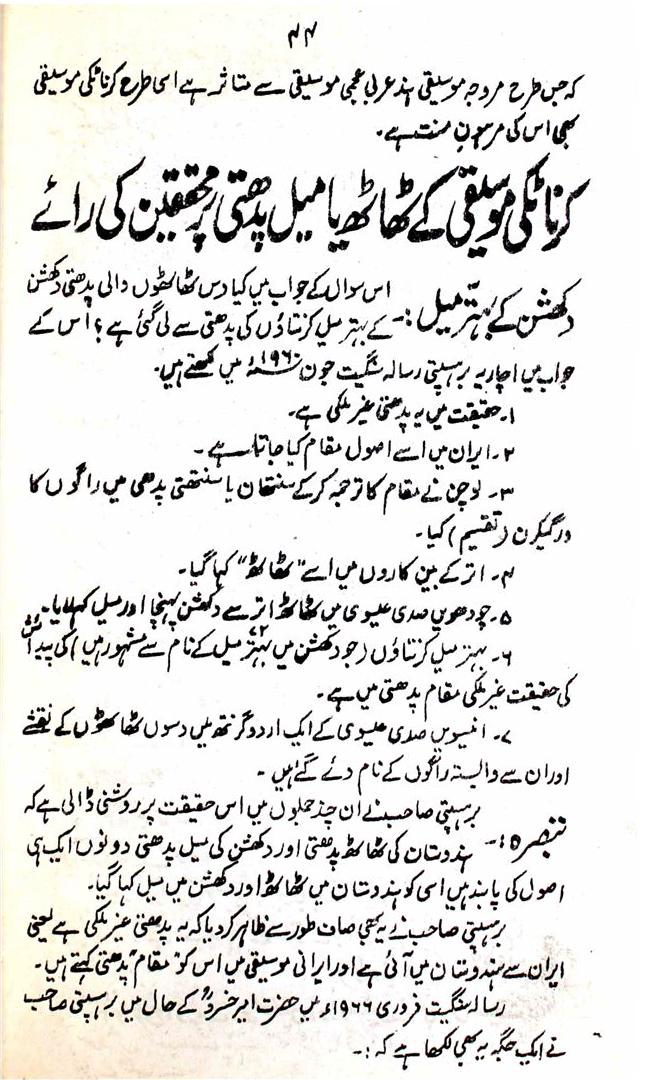 ۴۴
کہ جس طرح مروجہ موسیقی ہند عربی عجمی موسیقی سے متاثر ہے اسی طرح کرناٹکی موسیقی
بھی اس کی مرہونِ منت ہے۔
کرناٹکی موسیقی کے ٹھاٹھ یا میل پدھتی پر محققین کی رائے
دکھشن کے بہتّر میل :۔ اس سوال کے جواب میں کیا دس ٹھاٹھوں والی پدھتی دکھشن
کے بہتر میل کرتناؤں کی پدھتی سے لی گئی ہے؟ اس کے
جواب میں اچاریہ برہسپتی رسالہ سنگیت جون ۱۹۶۰ء میں لکھتے ہیں۔
۱۔ حقیقت میں یہ پدھتی غیر ملکی ہے۔
۲۔ ایران میں اسے اصول مقام کہا جاتا ہے۔
۳۔ لوچن نے مقام کا ترجمہ کرکے سنتھان یا سنتھتی پدھتی میں راگوں کا
ورگیکرن (تقسیم) کیا۔
۴۔ اتر کے بین کاروں میں اسے "ٹھاٹھ" کہا گیا۔
۵۔ چودھویں صدی عیسوی میں ٹھاٹھ اتر سے دکھشن پہنچا اور میل کہلایا۔
۶۔ بہتر میل کرتناؤں (جو دکھشن میں ۷۲ بہتر میل کے نام سے مشہور ہیں) کی پیدائش
کی حقیقت غیر ملکی مقام پدھتی میں ہے۔
۷۔ انیسویں صدی عیسوی کے ایک اردو گرنتھ میں دسوں ٹھاٹھوں کے نقشے
اور ان سے وابستہ راگوں کے نام دئے گئے ہیں۔
تبصرہ :۔ برہسپتی صاحب نے ان چند جملوں میں اس حقیقت پر روشنی ڈالی ہے کہ
ہندوستان کی ٹھاٹھ پدھتی اور دکھشن کی میل پدھتی دونوں ایک ہی
اصول کی پابند ہیں اسی کو ہندوستان میں ٹھاٹھ اور دکھشن میں میل کہا گیا۔
برہسپتی صاحب نے یہ بھی صاف طور سے ظاہر کردیا کہ یہ پدھتی غیر ملکی ہے یعنی
ایران سے ہندوستان میں آئی ہے اور ایرانی موسیقی میں اس کو "مقام" پدھتی کہتے ہیں۔
رسالہ سنگیت فروری ۱۹۶۶ء میں حضرت امیر خسروؒ کے حال میں برہسپتی صاحب
نے ایک جگہ یہ بھی لکھا ہے کہ :۔